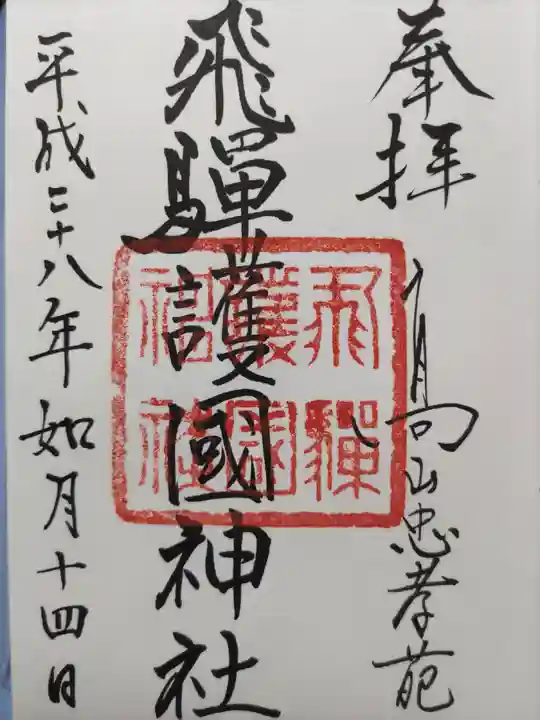 奉拝
高山忠孝苑
飛騨護國神社
飛騨護國神社
平成二十八年如月十四日